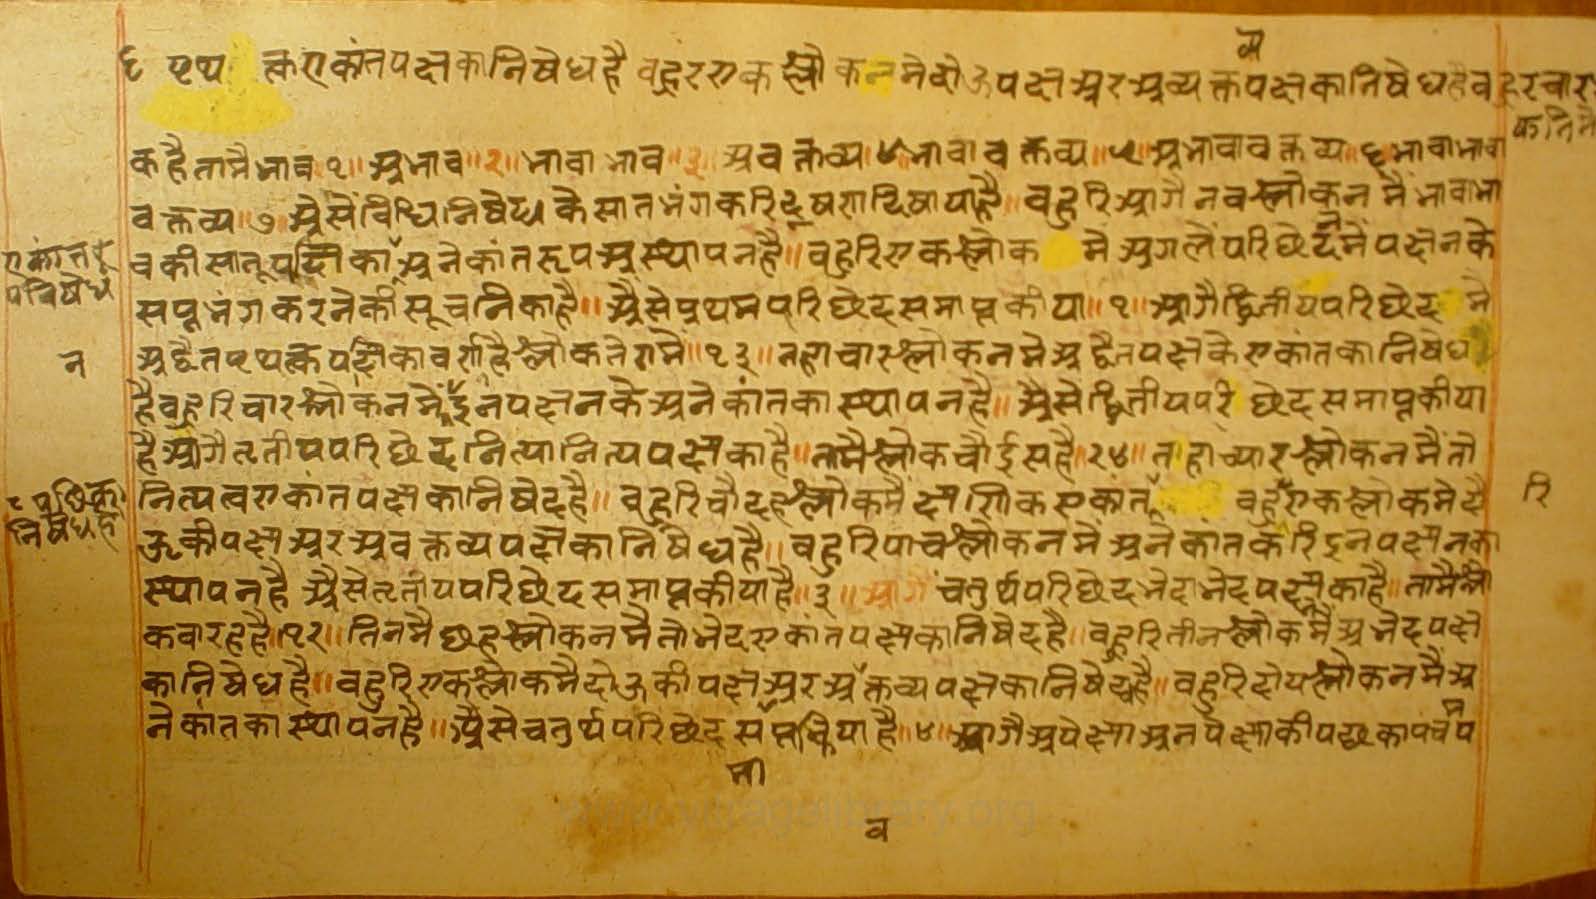 ६ पृथ त्क एकांतपक्षका निषेध है वहुर एक श्लोकनमे दोऊपक्ष अर अव्यक्तपक्षका निषेध है वहुर चार
कहै तामै भाव १॥ अभाव॥२॥ भावाभाव॥३॥ अवक्तव्य॥४॥ भावावक्तव्य॥५॥ अभावावक्तव्य॥६॥ भावाभावा
वक्तव्य॥७॥ अैसें विधिनिषेधकै सातभंगकरि दिषाया है॥ वहुरि आगै नवश्लोकनमैं भावाभा
वकी अनेकांतरूप अस्थापन है॥ वहुरि एकश्लोक मे अगलें परिछेदनमें पक्षनके
सप्तभंग करनेकी सूचनिका है॥ अैसे प्रथमपरिछेद समाप्त कीया॥१॥ आगै द्वितीयपरिछेद मै
अद्वैत पृथत्क पक्षका वर्णन है श्लोक तेरामैं॥१३॥ तहा चार श्लोकनमे अद्वैतपक्षके एकांतका निषेध
है वहुरि चार श्लोकनमें इनपक्षनके अनेकांतका स्थापन है॥ अैसे द्वितीयपरिछेद समाप्त कीया
है आगै तृतीयपरिछेद नित्यानित्यपक्षका है॥ तामै श्लोक चौईस है॥२४॥ ताहा च्यार श्लोकनमैं तो
नित्यत्व एकांतपक्षका निषेद है॥ वहुरि चौदह श्लोकमैं क्षणिक एकांत वहुरि एकश्लोकमे दो
ऊकी पक्ष अर अवक्तव्यपक्षका निषेध है॥ वहुरि पाच श्लोकनमें अनेकांतकरि इनपक्षनका
स्थापन है अैसे तृतीयपरिछेद समाप्त कीया है॥३॥ आगै चतुर्थपरिछेद भेदाभेदपक्षका है॥ तामै श्लो
क वारह है॥१२॥ तिनमै छह श्लोकनमै तो भेद एकांतपक्षका निषेद है॥ वहुरि तीन श्लोकमैं अभेदपक्ष
का निषेध है॥ वहुरि एकश्लोकमै दोऊकी पक्ष अर अक्तव्यपक्षका निषेद है॥ वहुरि दोय श्लोकनमैं अ
नेकांतका स्थापन है॥ अैसे चतुर्थपरिछेद समाप्त किया है॥४॥ आगै अपेक्षा अनपेक्षाकी पछका पंचप
एकांत
निषेध
न
निषेध है
रि
मा
व